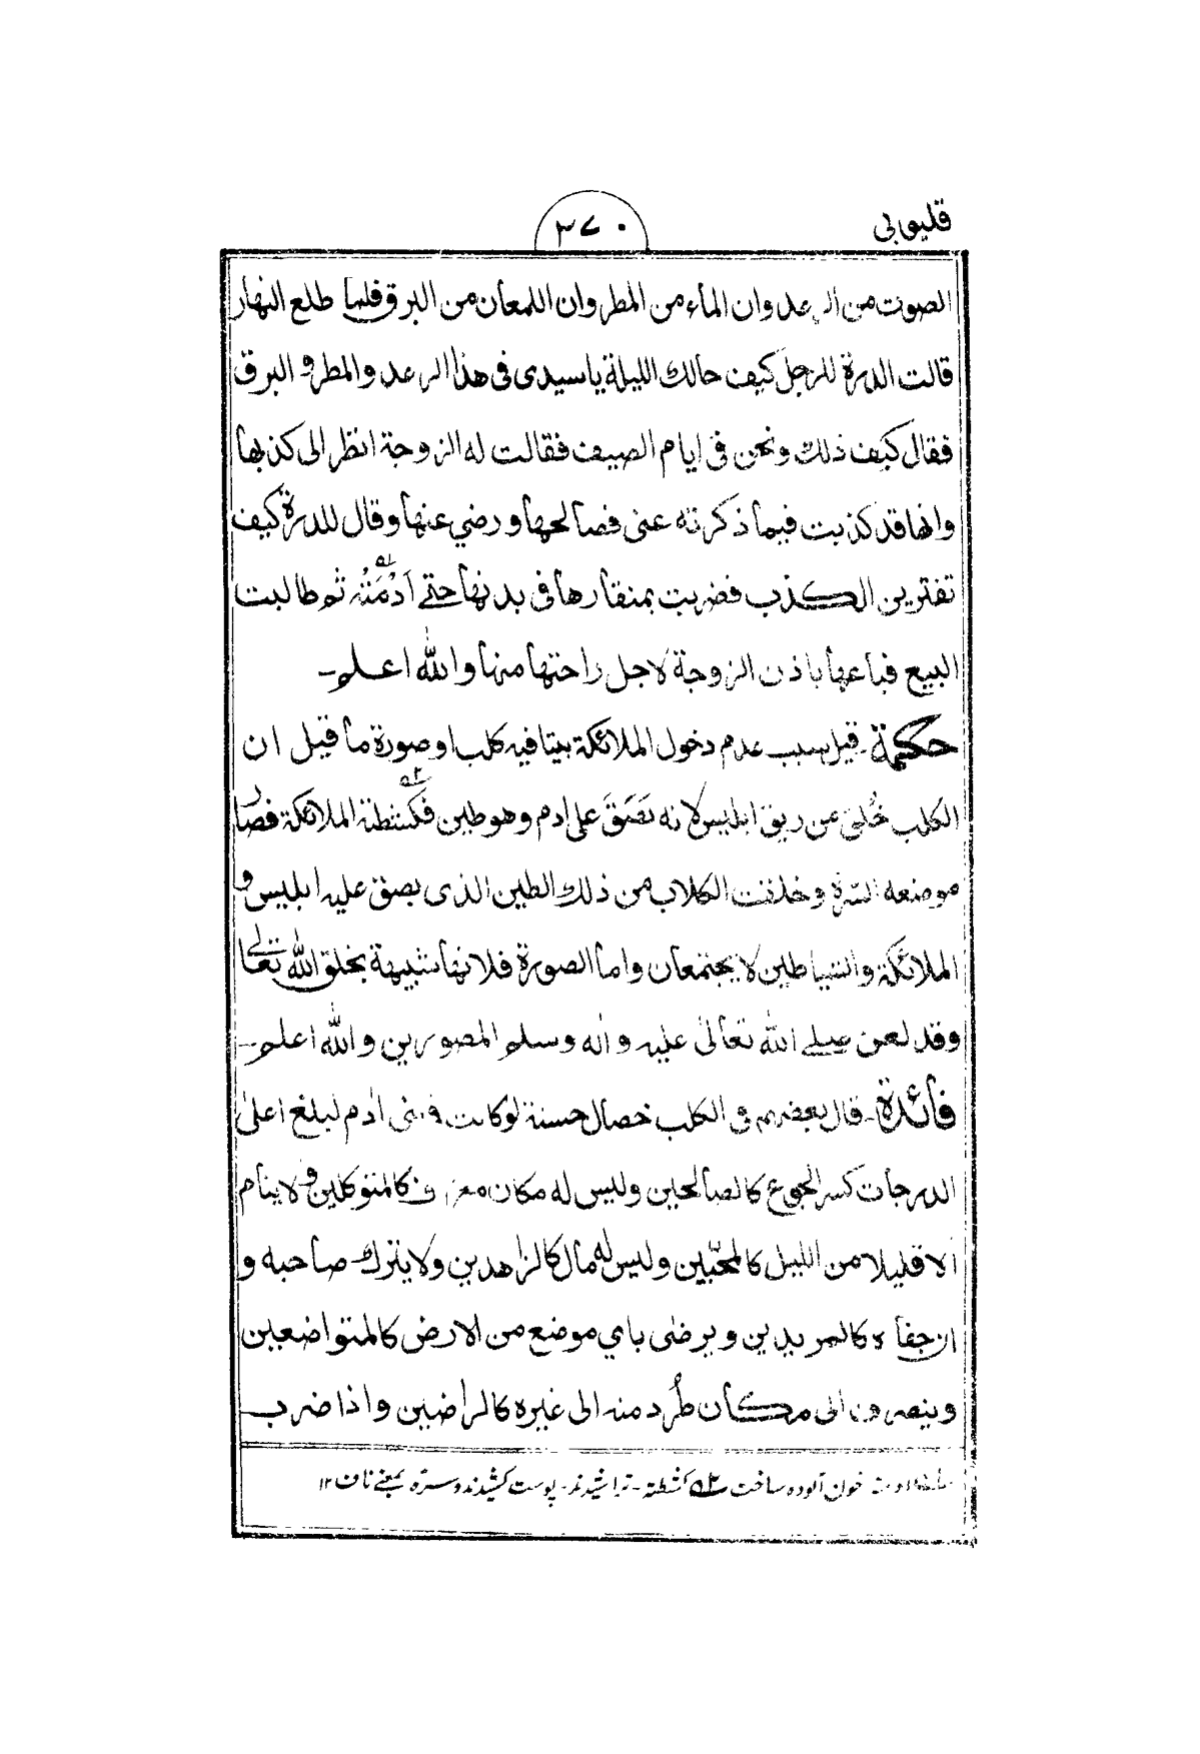 قليوبى
٣٧٠
الصوت من الرعد وان الماء من المطر وان اللمعان من البرق فلما طلع النهار
قالت الدرة للرجل كيف حالك الليلة ياسيدى فى هذا الرعد والمطر و البرق
فقال كيف ذلك ونحن فى ايام الصيف فقالت له الزوجة انظر الى كذبها
وانها قد كذبت فيما ذكرته عنى فصالحها ورضي عنها وقال للدرة كيف
تفترين الكذب فضربت بمنقارها فى بدنها حتے اَدْمَتْهُ ثم طالبت
البيع فباعها باذن الزوجة لاجل راحتها منها والله اعلم۔
حكمة۔ قيل سبب عدم دخول الملائكة بيتا فيه كلب او صورة ما قيل ان
الكلب خُلق من ريق ابليس لانه بَصَقَ على ادم وهو طين فكشطته الملائكة فصار
موضعه السرة وخلقت الكلاب من ذلك الطين الذى بصق عليه ابليس و
الملائكة والشياطين لا يجتمعان واما الصورة فلانها شبيهة بخلق الله تعالے
وقد لعن صلے الله تعالىٰ عليه واٰله وسلم المصورين والله اعلم۔
فائدة۔ قال بعضهم فى الكلب خصال حسنة لو كانت فى بنى اٰدم لبلغ اعلىٰ
الدرجات كسر الجوع كالصالحين وليس له مكان معروف كالمتوكلين و لا ينام
الا قليلا من الليل كالمحبّين وليس له مال كالزاهدين ولا يترك صاحبه و
ان جفاه كالمريدين ويرضى باي موضع من الارض كالمتواضعين
وينصرف الى مكان طُرد منه الى غيره كالراضين واذا ضرب
خون آلوده ساخت ٥٢ كشطته۔ تراشيدند۔ پوست كشيدند وسره بمعنے ناف ١٢